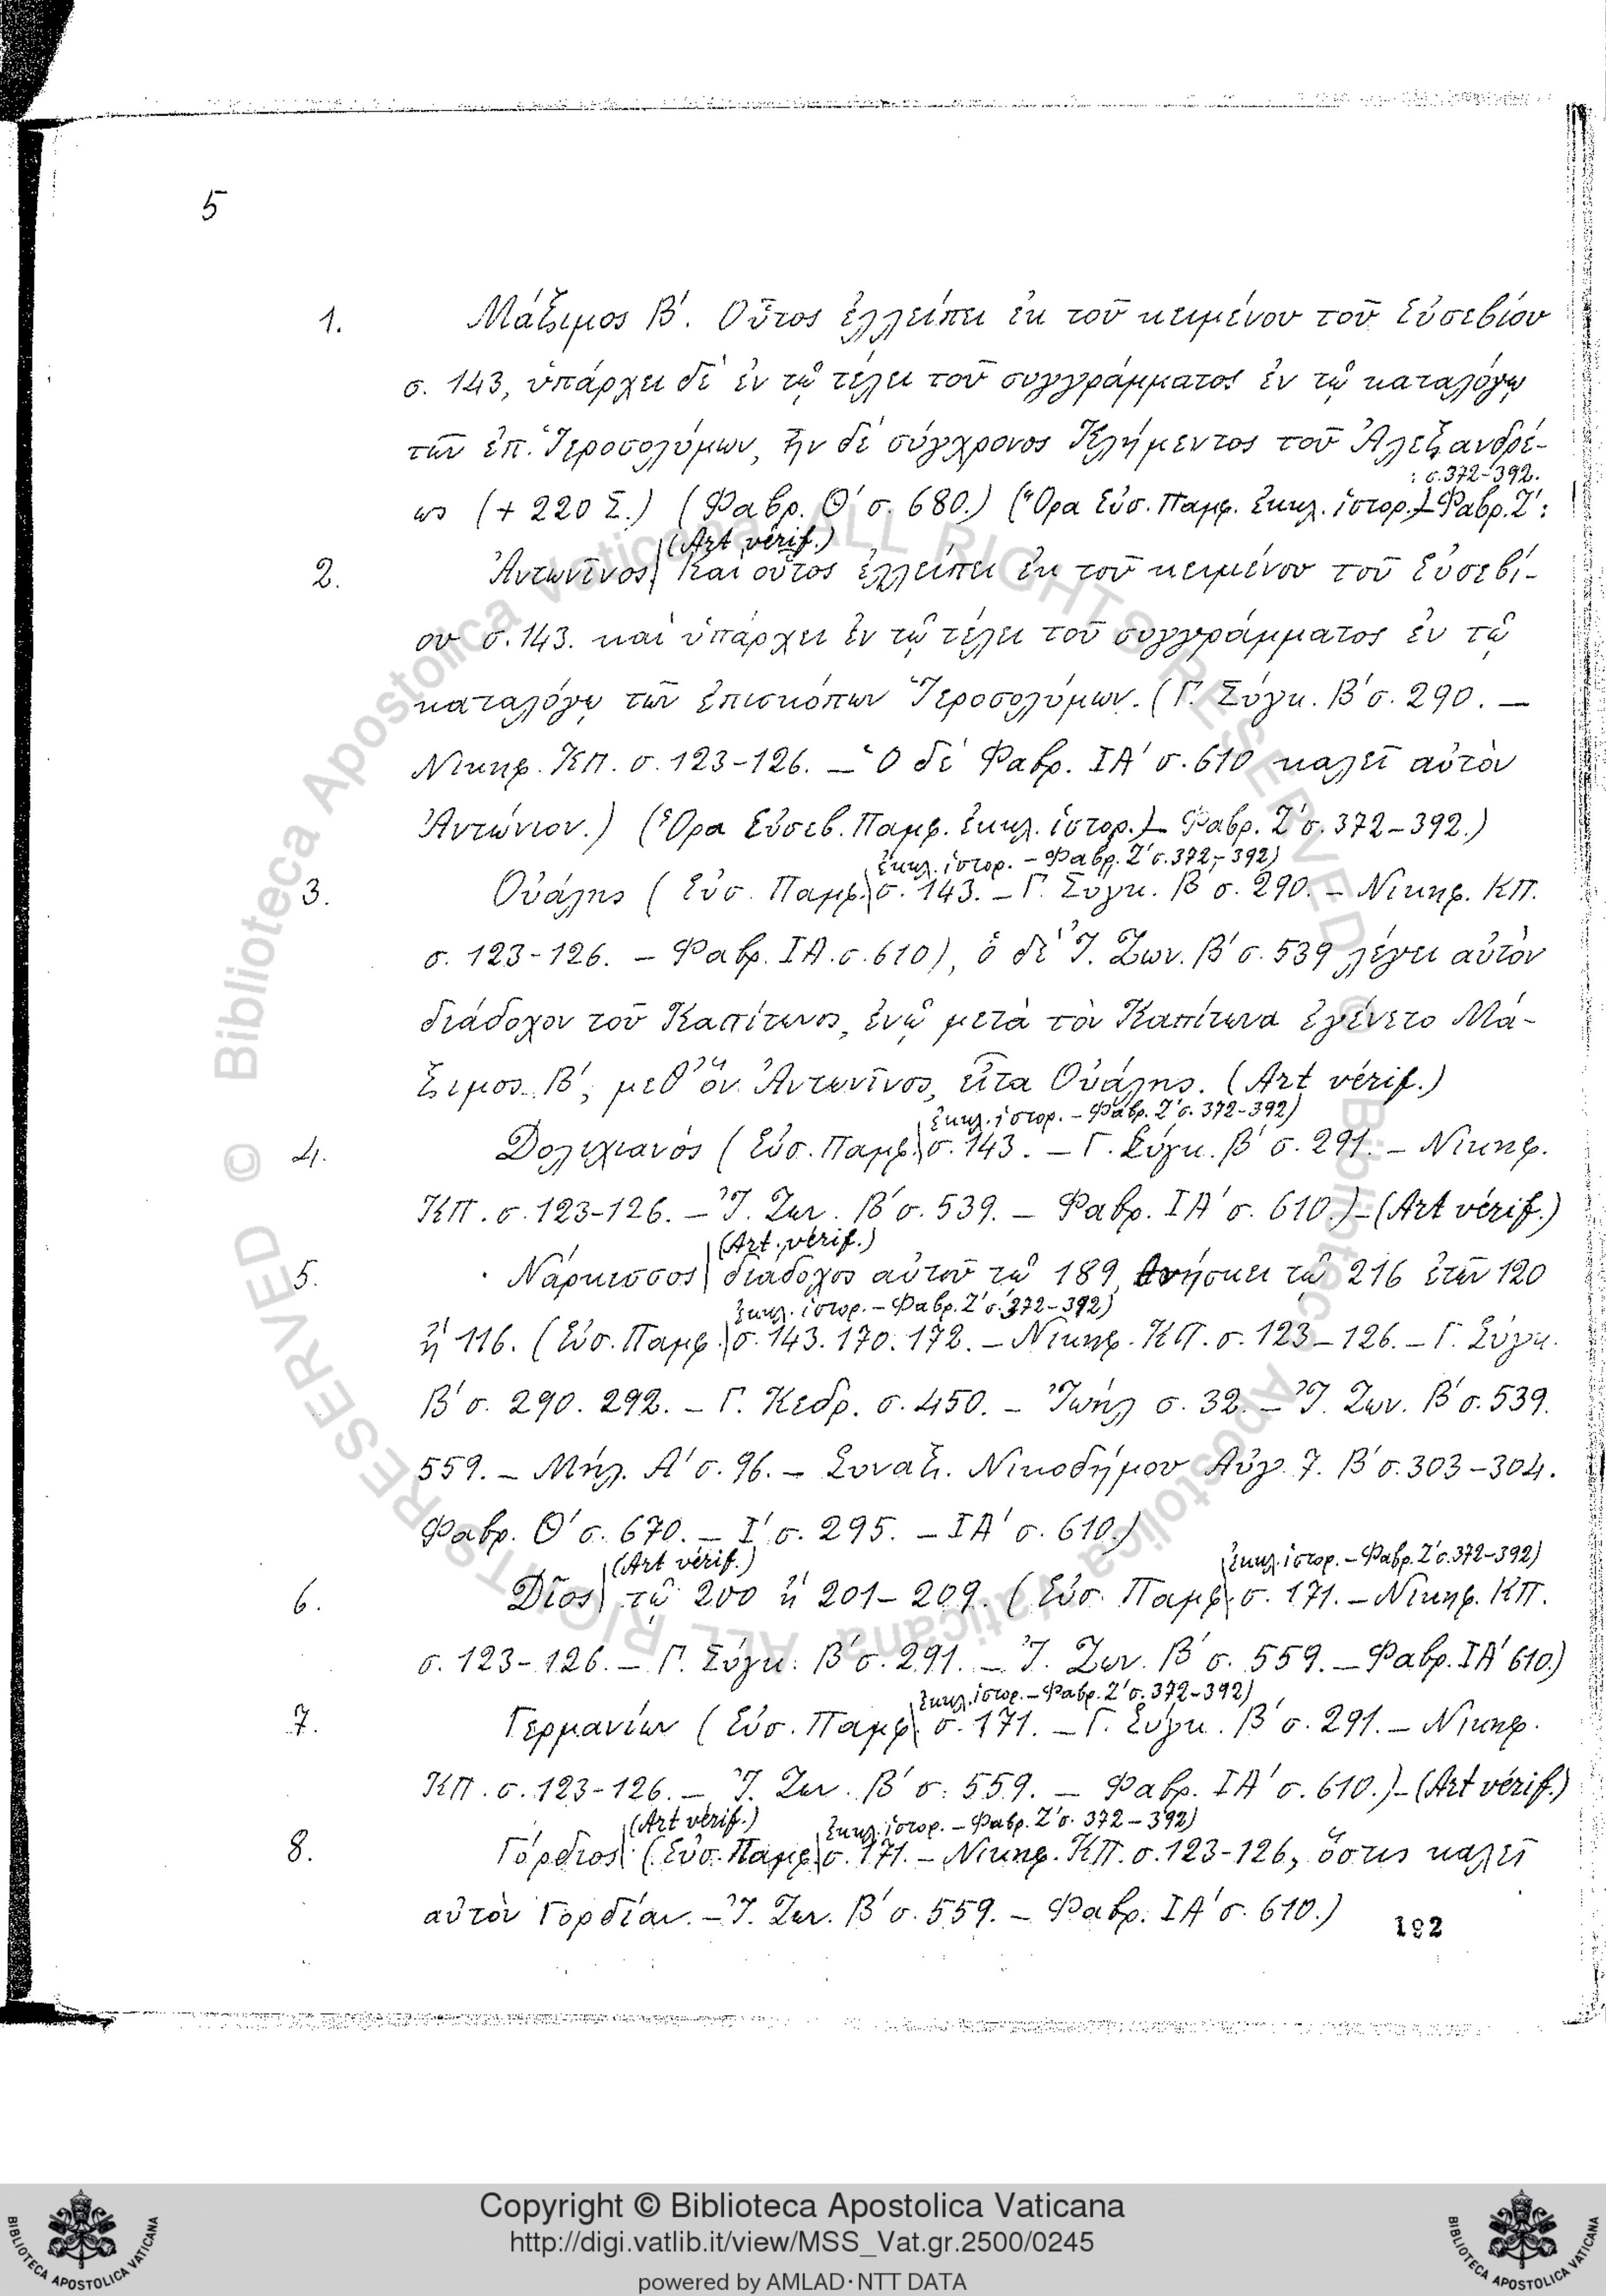 5
1. Μάξιμος Β΄. Οὗτος ἐλλείπει ἐκ τοῦ κειμένου τοῦ Εὐσεβίου
σ. 143, ὑπάρχει δὲ ἐν τῷ τέλει τοῦ συγγράμματος ἐν τῷ καταλόγῳ
τῶν ἐπ. Ἱεροσολύμων, ἦν δὲ σύγχρονος Κλήμεντος τοῦ Ἀλεξανδρέ-
: σ. 372-392.
ως (+ 220 Σ.) (Φαβρ. Θ΄ σ. 680.) (Ὅρα Εὐσ. Παμφ. ἐκκλ. ἱστορ.) – Φαβρ. Ζ΄:
(Art vérif.)
2. Ἀντωνῖνος Καὶ οὗτος ἐλλείπει ἐκ τοῦ κειμένου τοῦ Εὐσεβί-
ου σ. 143. καὶ ὑπάρχει ἐν τῷ τέλει τοῦ συγγράμματος ἐν τῷ
καταλόγῳ τῶν ἐπισκόπων Ἱεροσολύμων. (Γ. Σύγκ. Β΄ σ. 290. –
Νικηφ. ΚΠ. σ. 123-126. – Ὁ δὲ Φαβρ. ΙΑ΄ σ. 610 καλεῖ αὐτὸν
Ἀντώνιον.) (Ὅρα Εὐσεβ. Παμφ. ἐκκλ. ἱστορ.) – Φαβρ. Ζ΄ σ. 372-392.)
ἐκκλ. ἱστορ. – Φαβρ. Ζ΄ σ. 372-392)
3. Οὐάλης (Εὐσ. Παμφ. σ. 143. – Γ. Σύγκ. Β σ. 290. – Νικηφ. ΚΠ.
σ. 123-126. – Φαβρ. ΙΑ. σ. 610), ὁ δὲ Ἰ. Ζων. Β΄ σ. 539 λέγει αὐτὸν
διάδοχον τοῦ Καπίτωνος, ἐνῷ μετὰ τὸν Καπίτωνα ἐγένετο Μά-
ξιμος Β΄, μεθ᾽ ὃν Ἀντωνῖνος, εἶτα Οὐάλης. (Art vérif.)
ἐκκλ. ἱστορ. – Φαβρ. Ζ΄ σ. 372-392)
4. Δολιχιανός (Εὐσ. Παμφ. σ. 143. – Γ. Σύγκ. Β΄ σ. 291. – Νικηφ.
ΚΠ. σ. 123-126. – Ἰ. Ζων. Β΄ σ. 539. – Φαβρ. ΙΑ΄ σ. 610.) – (Art vérif.)
(Art. vérif.)
5. Νάρκισσος διάδοχος αὐτοῦ τῷ 189, θνήσκει τῷ 216 ἐτῶν 120
ἐκκλ. ἱστορ. – Φαβρ. Ζ΄ σ. 372-392)
ἢ 116. (Εὐσ. Παμφ. σ. 143. 170. 172. – Νικηφ. ΚΠ. σ. 123-126. – Γ. Σύγκ.
Β΄ σ. 290. 292. – Γ. Κεδρ. σ. 450. – Ἰωὴλ σ. 32. – Ἰ. Ζων. Β΄ σ. 539.
559. – Μήλ. Α΄ σ. 96. – Συναξ. Νικοδήμου Αὐγ. 7. Β΄ σ. 303-304.
Φαβρ. Θ΄ σ. 670. – Ι΄ σ. 295. – ΙΑ΄ σ. 610.)
(Art vérif.) ἐκκλ. ἱστορ. – Φαβρ. Ζ΄ σ. 372-392)
6. Δῖος τῷ 200 ἢ 201-209. (Εὐσ. Παμφ. σ. 171. – Νικηφ. ΚΠ.
σ. 123-126. – Γ. Σύγκ. Β΄ σ. 291. – Ἰ. Ζων. Β΄ σ. 559. – Φαβρ. ΙΑ΄ 610.)
ἐκκλ. ἱστορ. – Φαβρ. Ζ΄ σ. 372-392)
7. Γερμανίων (Εὐσ. Παμφ. σ. 171. – Γ. Σύγκ. Β΄ σ. 291. – Νικηφ.
ΚΠ. σ. 123-126. – Ἰ. Ζων. Β΄ σ. 559. – Φαβρ. ΙΑ΄ σ. 610.) – (Art vérif.)
(Art vérif.) ἐκκλ. ἱστορ. – Φαβρ. Ζ΄ σ. 372-392)
8. Γόρδιος (Εὐσ. Παμφ. σ. 171. – Νικηφ. ΚΠ. σ. 123-126, ὅστις καλεῖ
αὐτὸν Γορδίαν. – Ἰ. Ζων. Β΄ σ. 559. – Φαβρ. ΙΑ΄ σ. 610.)
192
© Biblioteca Apostolica Vaticana ALL RIGHTS RESERVED © Biblioteca Apostolica Vaticana ALL RIGHTS RESERVED
Copyright © Biblioteca Apostolica Vaticana
http://digi.vatlib.it/view/MSS_Vat.gr.2500/0245
powered by AMLAD·NTT DATA
BIBLIOTECA APOSTOLICA VATICANA
BIBLIOTECA APOSTOLICA VATICANA